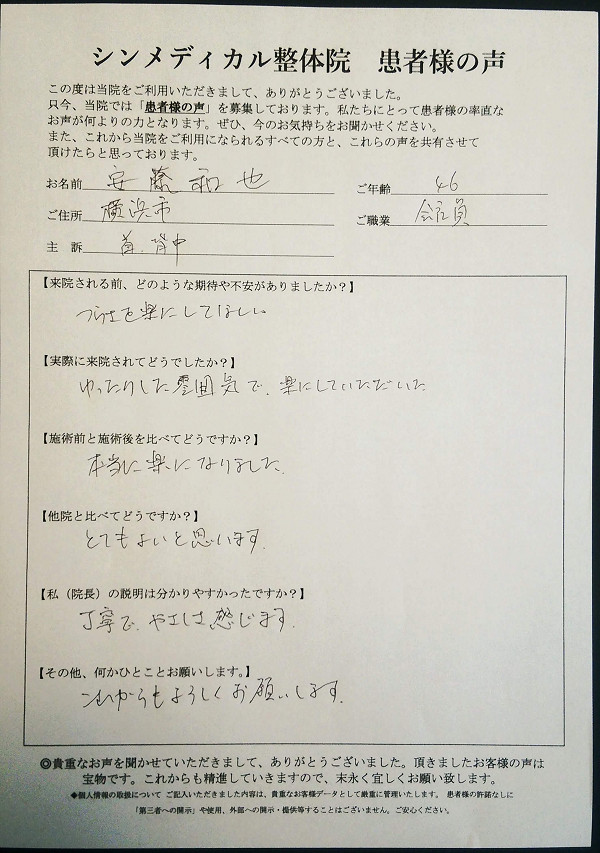 シンメディカル整体院 患者様の声
この度は当院をご利用いただきまして、ありがとうございました。
只今、当院では「患者様の声」を募集しております。私たちにとって患者様の率直な
お声が何よりの力となります。ぜひ、今のお気持ちをお聞かせください。
また、これから当院をご利用になられるすべての方と、これらの声を共有させて
頂けたらと思っております。
お名前 安藤和也 ご年齢 46
ご住所 横浜市 ご職業 会社員
主 訴 首.背中
【来院される前、どのような期待や不安がありましたか？】
つらさを楽にしてほしい
【実際に来院されてどうでしたか？】
ゆったりした雰囲気で、楽にしていただいた
【施術前と施術後を比べてどうですか？】
本当に楽になりました.
【他院と比べてどうですか？】
とてもよいと思います.
【私（院長）の説明は分かりやすかったですか？】
丁寧で、やさしさ感じます.
【その他、何かひとことお願いします。】
これからもよろしくお願いします.
◎貴重なお声を聞かせていただきまして、ありがとうございました。頂きましたお客様の声は
宝物です。これからも精進していきますので、末永く宜しくお願い致します。
◆個人情報の取扱について ご記入いただきました内容は、貴重なお客様データとして厳重に管理いたします。 患者様の許諾なしに
「第三者への開示」や使用、外部への開示・提供等することはございません。ご安心ください。